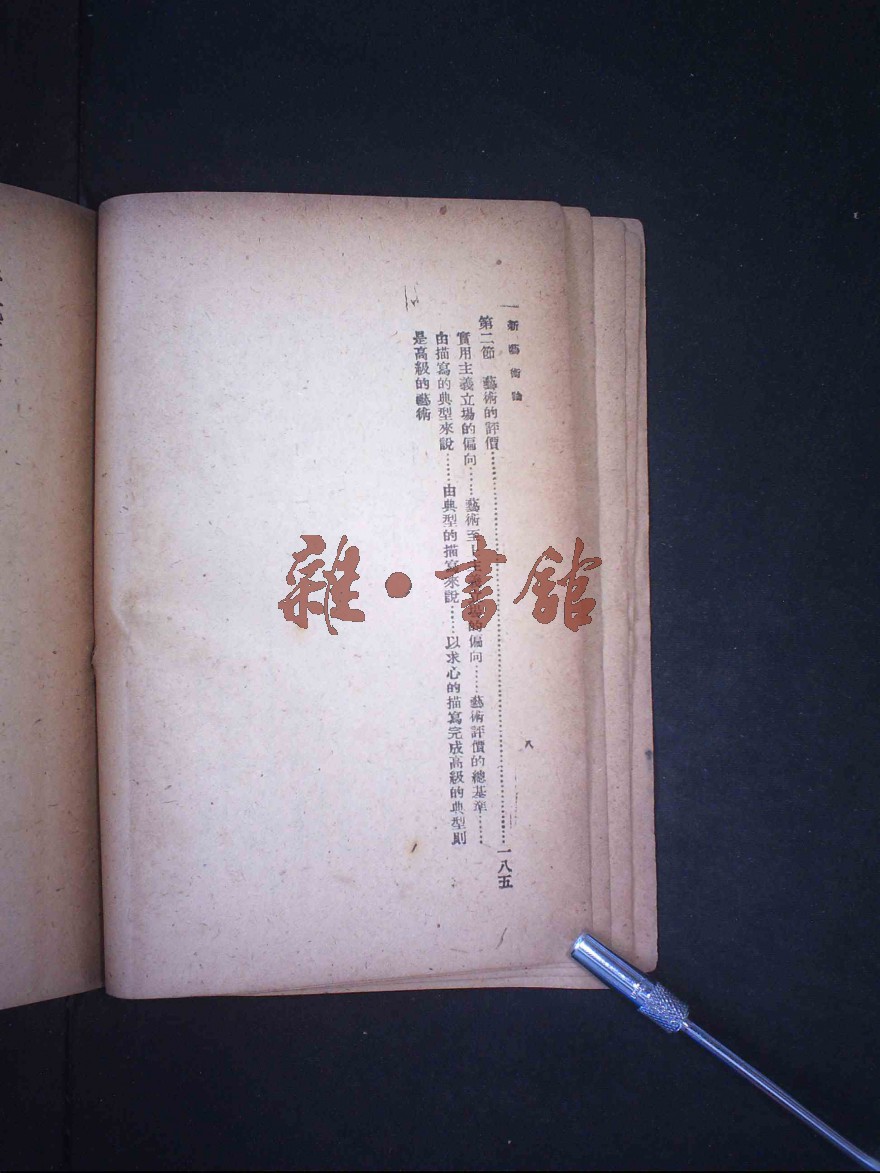 新藝術論
八
第二節 藝術的評價……一八五
實用主義立場的偏向……藝術至上主義立場的偏向……藝術評價的總基準……
由描寫的典型來說……由典型的描寫來說……以求心的描寫完成高級的典型則
是高級的藝術
雜·書館